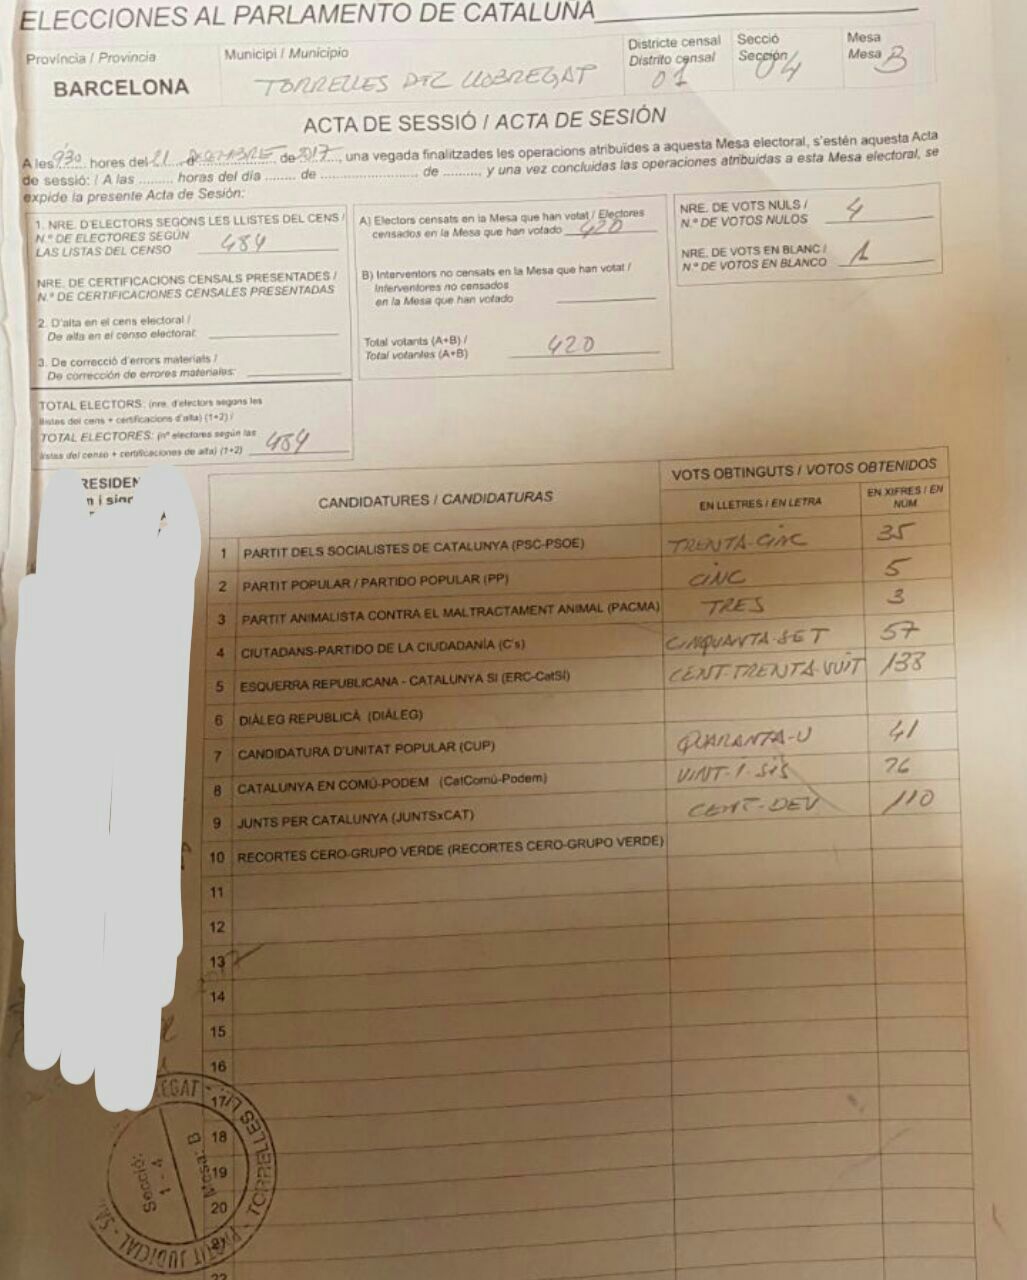 ELECCIONES AL PARLAMENTO DE CATALUÑA
Província / Provincia
BARCELONA
Municipi / Municipio
TORRELLES DE LLOBREGAT
Districte censal
Distrito censal
01
Secció
Sección
04
Mesa
Mesa B
ACTA DE SESSIÓ / ACTA DE SESIÓN
A les 930 hores del 21 d DESEMBRE de 2017, una vegada finalitzades les operacions atribuïdes a aquesta Mesa electoral, s'estén aquesta Acta
de sessió: / A las ......... horas del día ........ de ......................... de ........., y una vez concluidas las operaciones atribuidas a esta Mesa electoral, se
expide la presente Acta de Sesión:
1. NRE. D'ELECTORS SEGONS LES LLISTES DEL CENS /
N.º DE ELECTORES SEGÚN
LAS LISTAS DEL CENSO 484
NRE. DE CERTIFICACIONS CENSALS PRESENTADES /
N.º DE CERTIFICACIONES CENSALES PRESENTADAS
2. D'alta en el cens electoral /
De alta en el censo electoral:
3. De correcció d'errors materials /
De corrección de errores materiales:
TOTAL ELECTORS: (nre. d'electors segons les
llistes del cens + certificacions d'alta) (1+2) /
TOTAL ELECTORES: (nº electores según las
listas del censo + certificaciones de alta) (1+2) 484
A) Electors censats en la Mesa que han votat / Electores
censados en la Mesa que han votado 420
B) Interventors no censats en la Mesa que han votat /
Interventores no censados
en la Mesa que han votado
Total votants (A+B) /
Total votantes (A+B) 420
NRE. DE VOTS NULS /
N.º DE VOTOS NULOS 4
NRE. DE VOTS EN BLANC /
N.º DE VOTOS EN BLANCO 1
RESIDEN
n i sign
CANDIDATURES / CANDIDATURAS
VOTS OBTINGUTS / VOTOS OBTENIDOS
EN LLETRES / EN LETRA
EN XIFRES / EN
NÚM
1 PARTIT DELS SOCIALISTES DE CATALUNYA (PSC-PSOE) TRENTA-CINC 35
2 PARTIT POPULAR / PARTIDO POPULAR (PP) CINC 5
3 PARTIT ANIMALISTA CONTRA EL MALTRACTAMENT ANIMAL (PACMA) TRES 3
4 CIUTADANS-PARTIDO DE LA CIUDADANÍA (C's) CINQUANTA-SET 57
5 ESQUERRA REPUBLICANA - CATALUNYA SI (ERC-CatSÍ) CENT-TRENTA-VUIT 138
6 DIÀLEG REPUBLICÀ (DIÀLEG)
7 CANDIDATURA D'UNITAT POPULAR (CUP) QUARANTA-U 41
8 CATALUNYA EN COMÚ-PODEM (CatComú-Podem) VINT-I-SIS 26
9 JUNTS PER CATALUNYA (JUNTSxCAT) CENT-DEU 110
10 RECORTES CERO-GRUPO VERDE (RECORTES CERO-GRUPO VERDE)
11
12
13
14
15
16
17
18
19
20
21
22
Secció:
1 - 4
Mesa: B
TORRELLES LL
EGAT
JUDICIAL